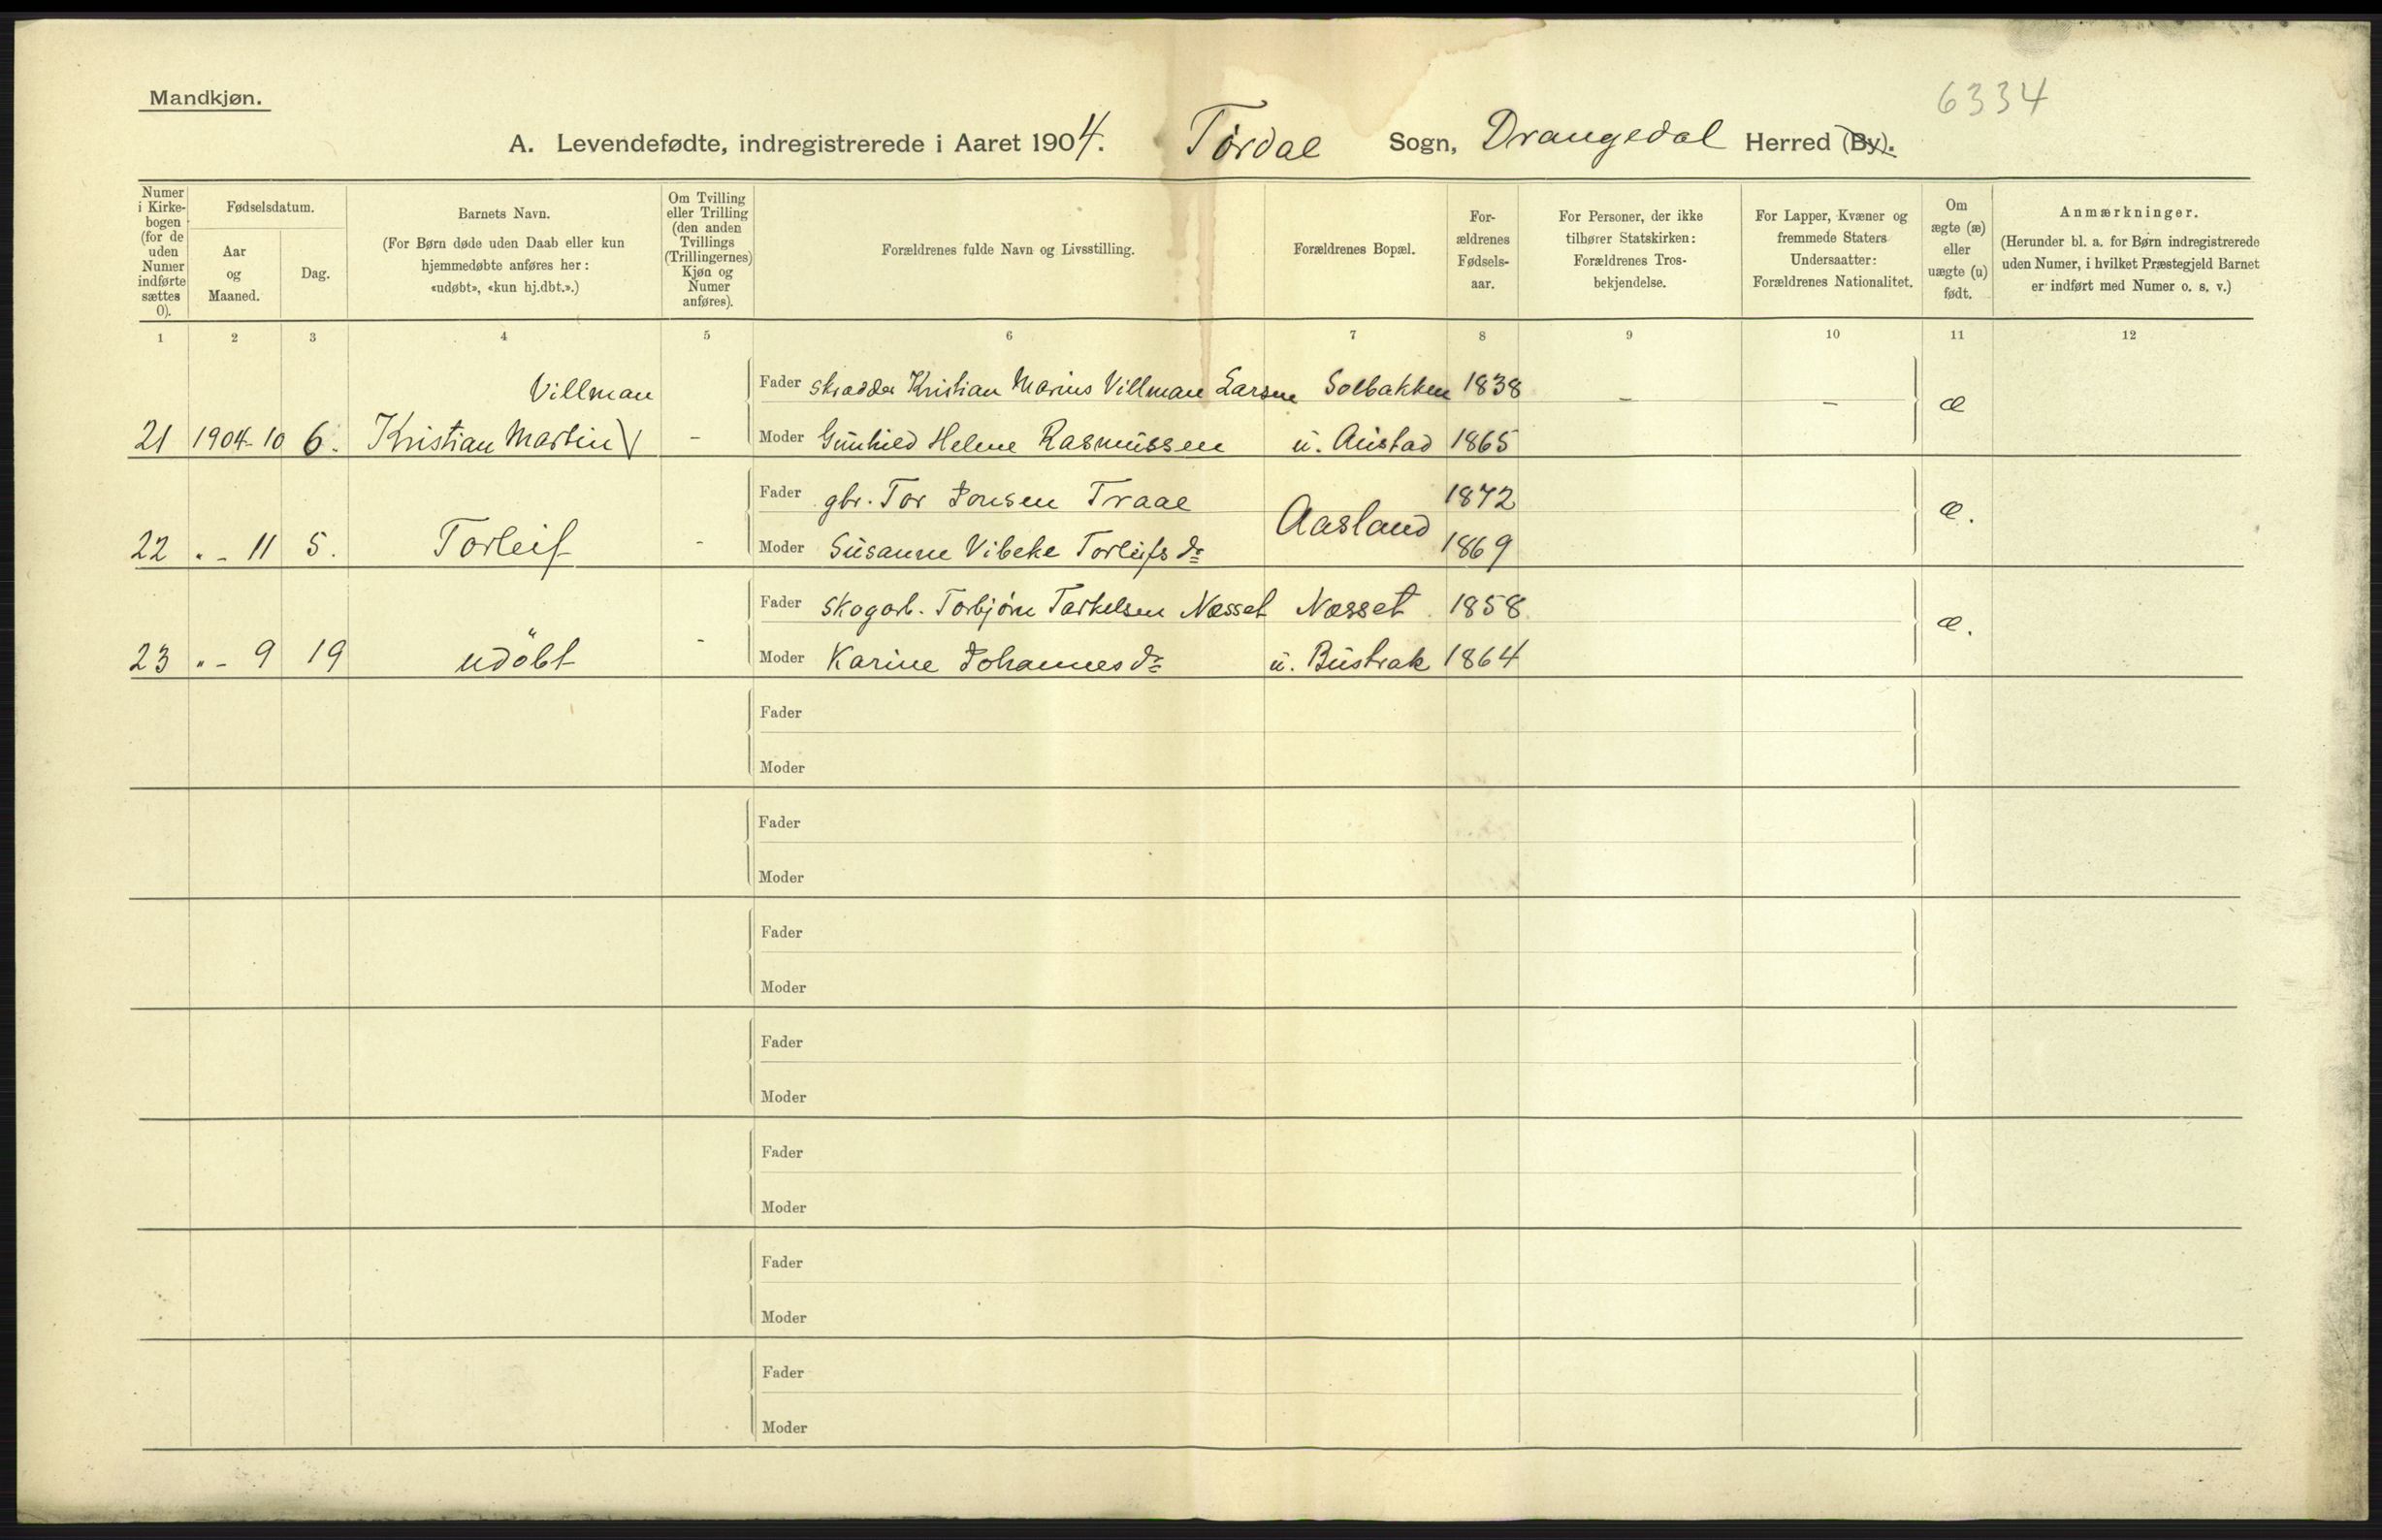 Mandkjøn.
6334
A. Levendefødte, indregistrerede i Aaret 1904. Tørdal Sogn, Drangedal Herred (By).
Numer i Kirkebogen (for de uden Numer indførte sættes 0).
Fødselsdatum.
Aar og Maaned.
Dag.
Barnets Navn.
(For Børn døde uden Daab eller kun hjemmedøbte anføres her: «udøbt», «kun hj.dbt.».)
Om Tvilling eller Trilling (den anden Tvillings (Trillingernes) Kjøn og Numer anføres).
Forældrenes fulde Navn og Livsstilling.
Forældrenes Bopæl.
For-ældrenes Fødsels-aar.
For Personer, der ikke tilhører Statskirken: Forældrenes Tros-bekjendelse.
For Lapper, Kvæner og fremmede Staters Undersaatter: Forældrenes Nationalitet.
Om ægte (æ) eller uægte (u) født.
Anmærkninger.
(Herunder bl. a. for Børn indregistrerede uden Numer, i hvilket Præstegjeld Barnet er indført med Numer o. s. v.)
1 2 3 4 5 6 7 8 9 10 11 12
Villman Fader Skrædder Kristian Marius Villman Larsen Solbakken 1838 – – æ
21 1904-10 6. Kristian Martin \/ – Moder Gunhild Helene Rasmussen u. Austad 1865
Fader gbr. Tor Jonsen Traae Aasland 1872 æ.
22 " – 11 5. Torleif - Moder Susanne Vibeke Torleifs dr 1869
Fader Skogarb. Torbjørn Tarkelsen Næsset Næsset 1858 æ.
23 " – 9 19 udøbt - Moder Karine Johannes dr u. Bustrak 1864
Fader
Moder
Fader
Moder
Fader
Moder
Fader
Moder
Fader
Moder
Fader
Moder
Fader
Moder